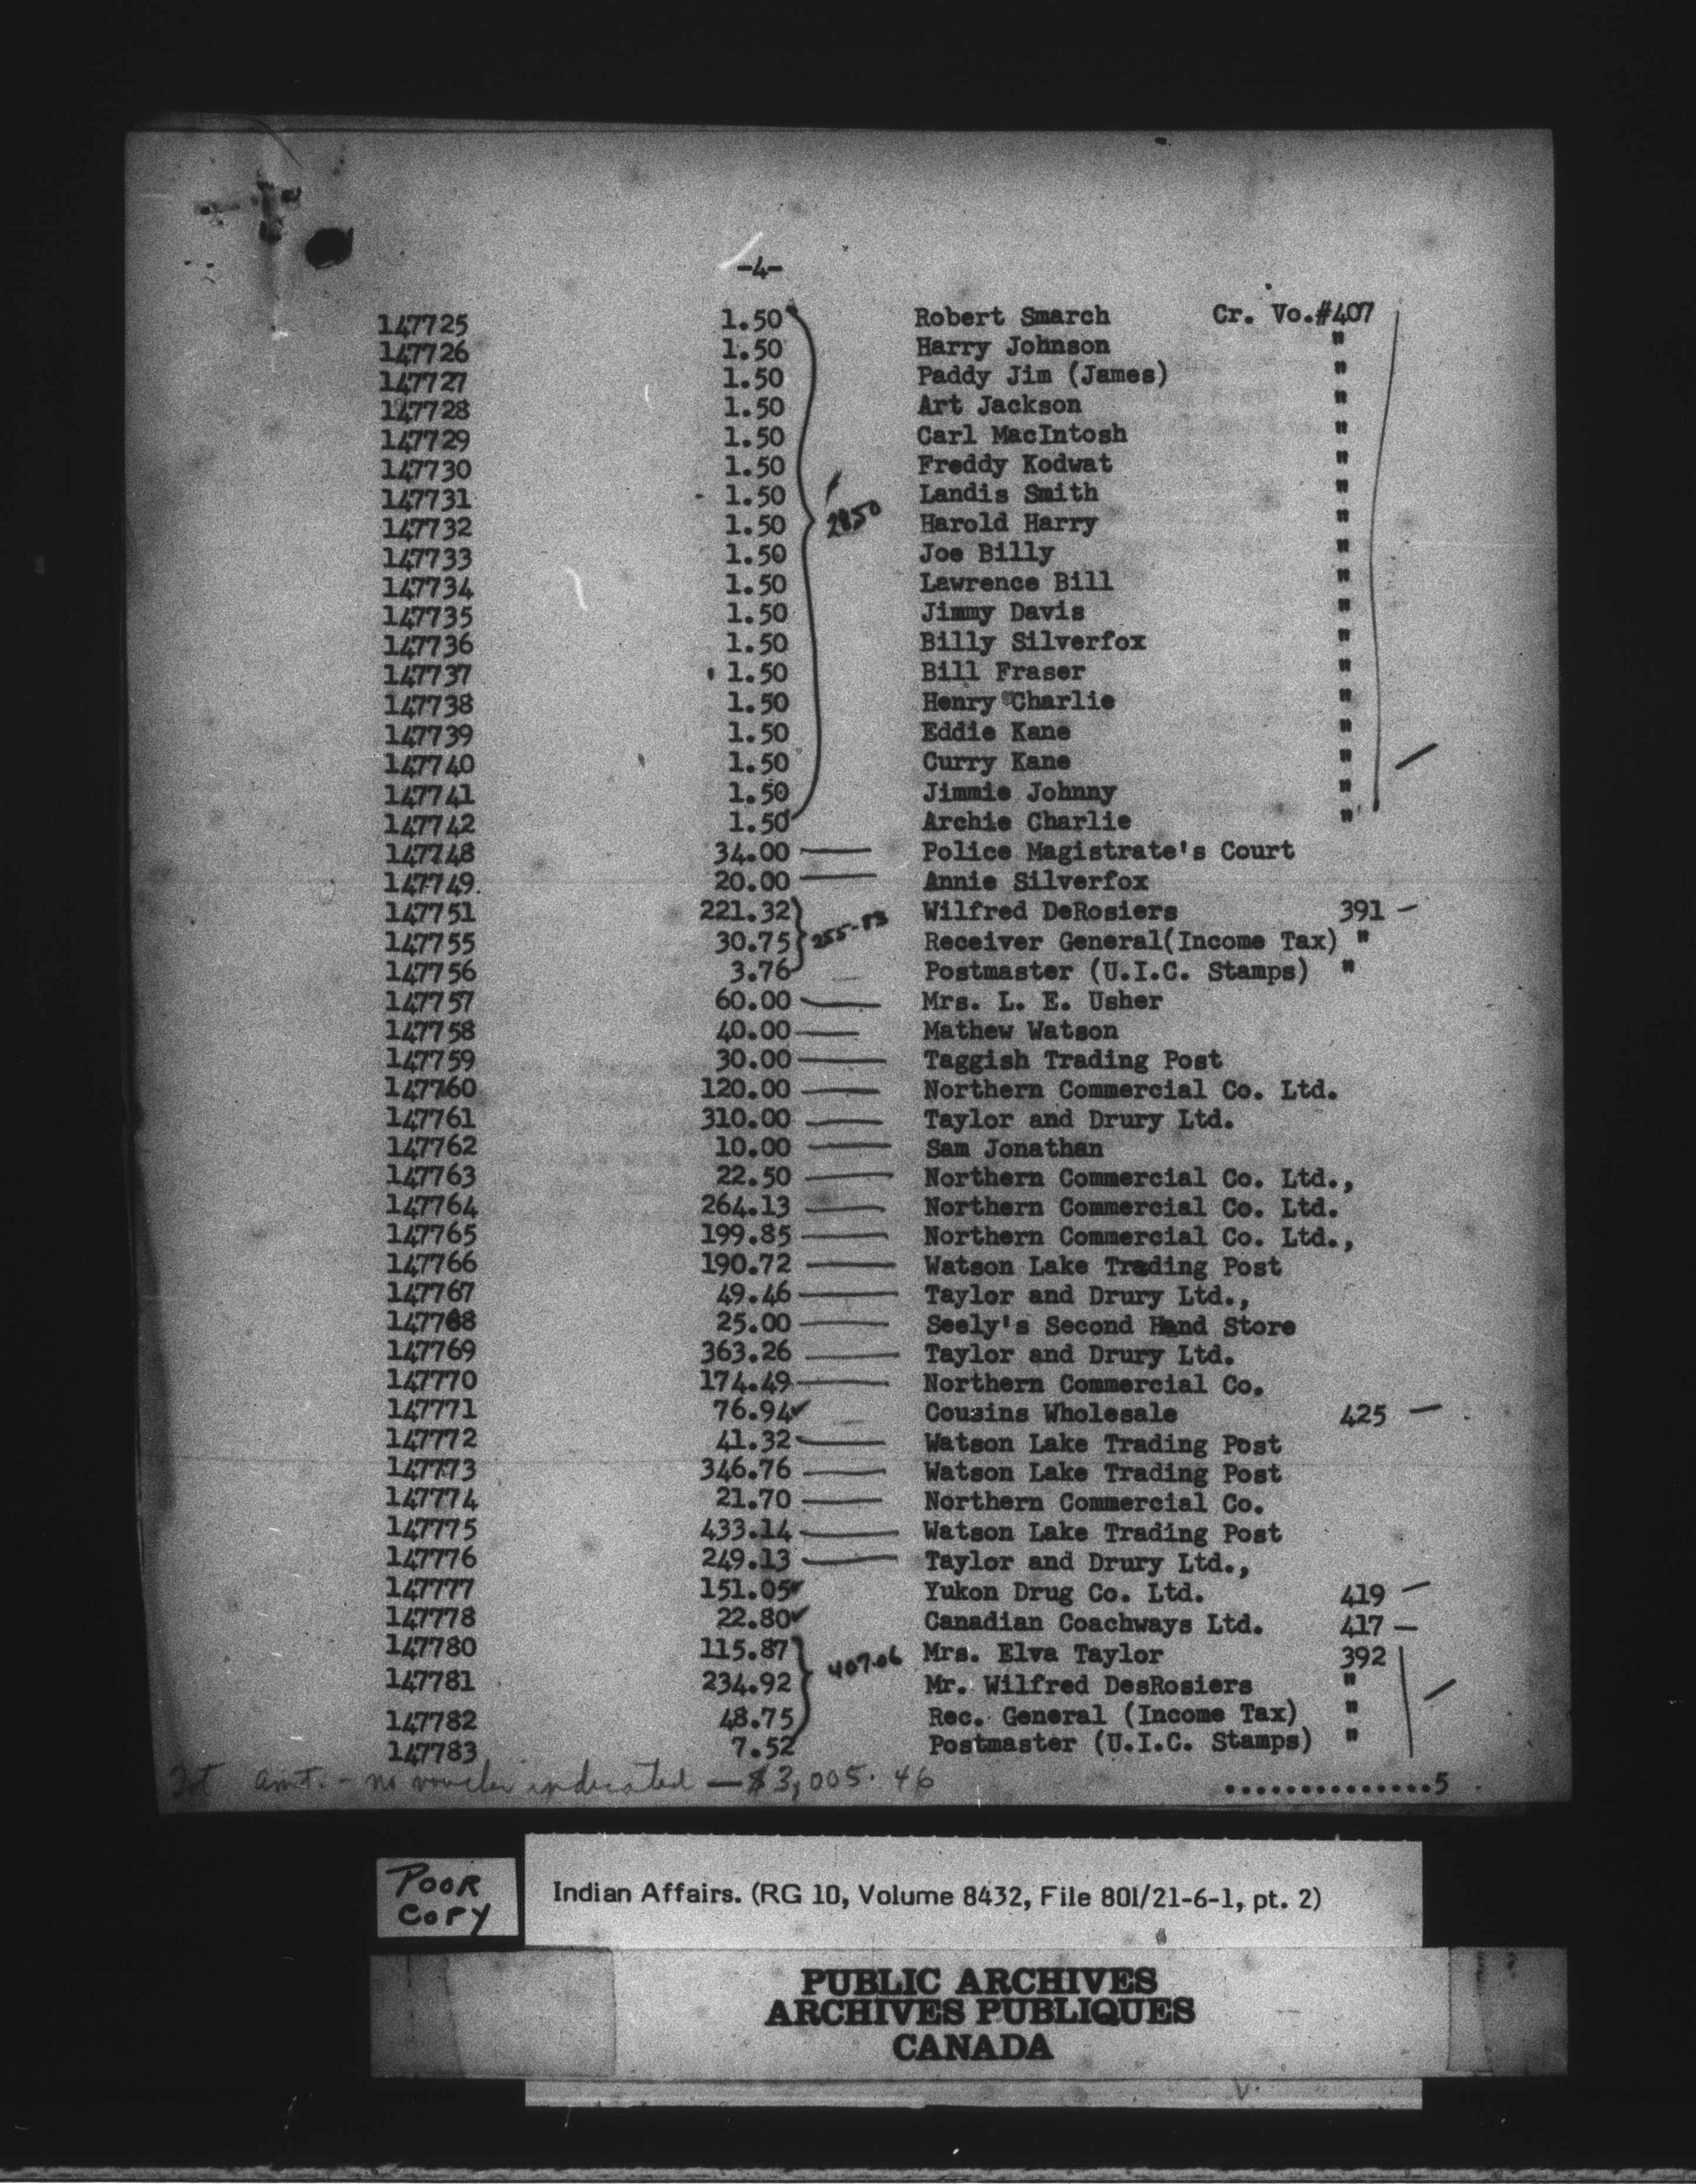 -4-
147725 1.50 Robert Smarch Cr. Vo.#407
147726 1.50 Harry Johnson "
147727 1.50 Paddy Jim (James) "
147728 1.50 Art Jackson "
147729 1.50 Carl MacIntosh "
147730 1.50 Freddy Kodwat "
147731 1.50 Landis Smith "
147732 1.50 Harold Harry "
147733 1.50 Joe Billy "
147734 1.50 Lawrence Bill "
147735 1.50 Jimmy Davis "
147736 1.50 Billy Silverfox "
147737 1.50 Bill Fraser "
147738 1.50 Henry Charlie "
147739 1.50 Eddie Kane "
147740 1.50 Curry Kane "
147741 1.50 Jimmie Johnny "
147742 1.50 Archie Charlie "
147748 34.00 Police Magistrate's Court
147749. 20.00 Annie Silverfox
147751 221.32 Wilfred DeRosiers 391 -
147755 30.75 255-83 Receiver General(Income Tax) "
147756 3.76 Postmaster (U.I.C. Stamps) "
147757 60.00 Mrs. L. E. Usher
147758 40.00 Mathew Watson
147759 30.00 Taggish Trading Post
147760 120.00 Northern Commercial Co. Ltd.
147761 310.00 Taylor and Drury Ltd.
147762 10.00 Sam Jonathan
147763 22.50 Northern Commercial Co. Ltd.,
147764 264.13 Northern Commercial Co. Ltd.
147765 199.85 Northern Commercial Co. Ltd.,
147766 190.72 Watson Lake Trading Post
147767 49.46 Taylor and Drury Ltd.,
147768 25.00 Seely's Second Hand Store
147769 363.26 Taylor and Drury Ltd.
147770 174.49 Northern Commercial Co.
147771 76.94 Cousins Wholesale 425 -
147772 41.32 Watson Lake Trading Post
147773 346.76 Watson Lake Trading Post
147774 21.70 Northern Commercial Co.
147775 433.14 Watson Lake Trading Post
147776 249.13 Taylor and Drury Ltd.,
147777 151.05 Yukon Drug Co. Ltd. 419 -
147778 22.80 Canadian Coachways Ltd. 417 -
147780 115.87 407.06 Mrs. Elva Taylor 392
147781 234.92 Mr. Wilfred DesRosiers "
147782 48.75 Rec. General (Income Tax) "
147783 7.52 Postmaster (U.I.C. Stamps) "
Tot amt. - no voucher indicated - $3,005.46
..............5
POOR
COPY
Indian Affairs. (RG 10, Volume 8432, File 801/21-6-1, pt. 2)
PUBLIC ARCHIVES
ARCHIVES PUBLIQUES
CANADA